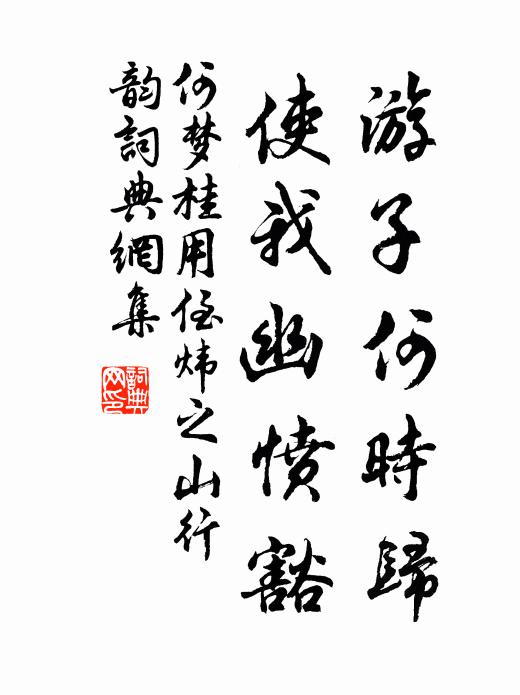 游子何時歸
使我幽憤豁
何梦桂用侄炜之山行
韵詞典網集
詞典
网印